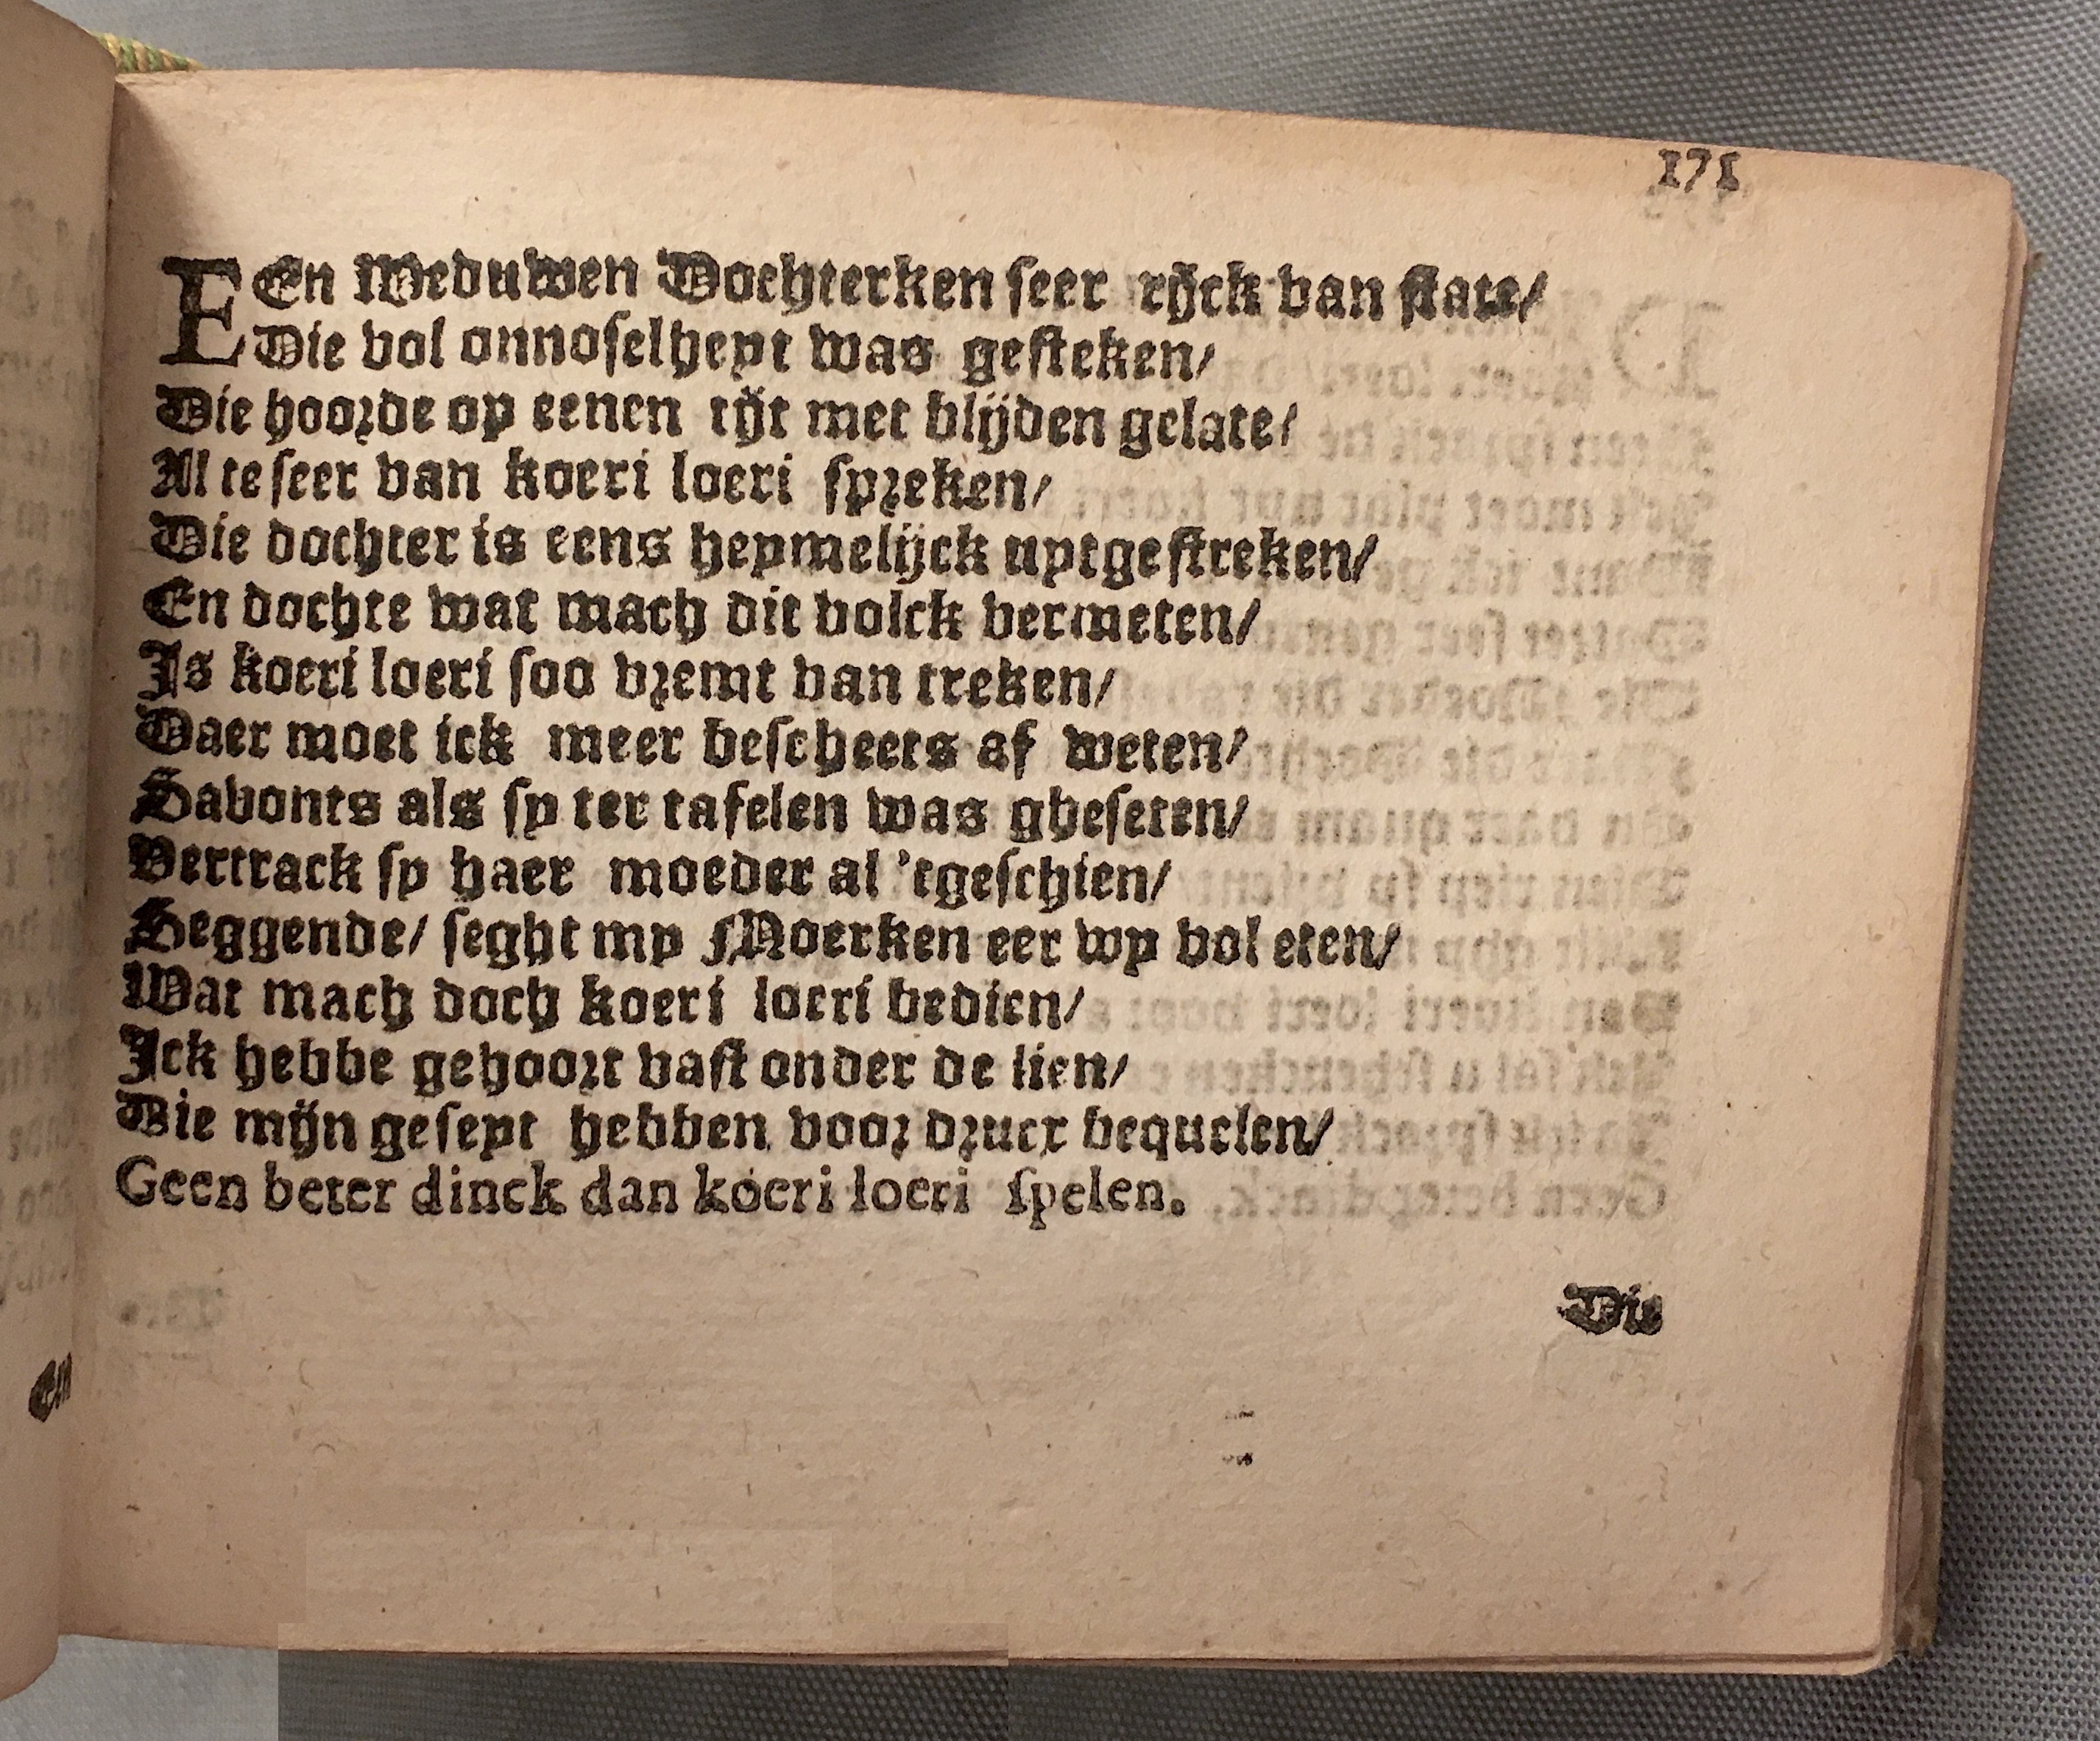 171
EEn Weduwen Dochterken seer rijck van state/
Die vol onnoselheyt was gesteken/
Die hoorde op eenen tijt met blijden gelate/
Al te seer van koeri loeri spreken/
Die dochter is eens heymelijck uytgestreken/
En dochte wat mach dit volck vermeten/
Is koeri loeri soo vremt van treken/
Daer moet ick meer bescheets af weten/
Savonts als sy ter tafelen was gheseten/
Vertrack sy haer moeder al 'tgeschien/
Seggende/ seght my Moerken eer wy vol eten/
Wat mach doch koeri loeri bedien/
Ick hebbe gehoort vast onder de lien/
Die mijn geseyt hebben voor druct bequelen/
Geen beter dinck dan koeri loeri spelen.
Die
En